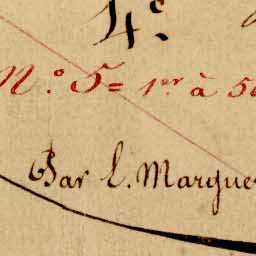 4.e
N.o 5= 1.er à 5
Par L. Margue